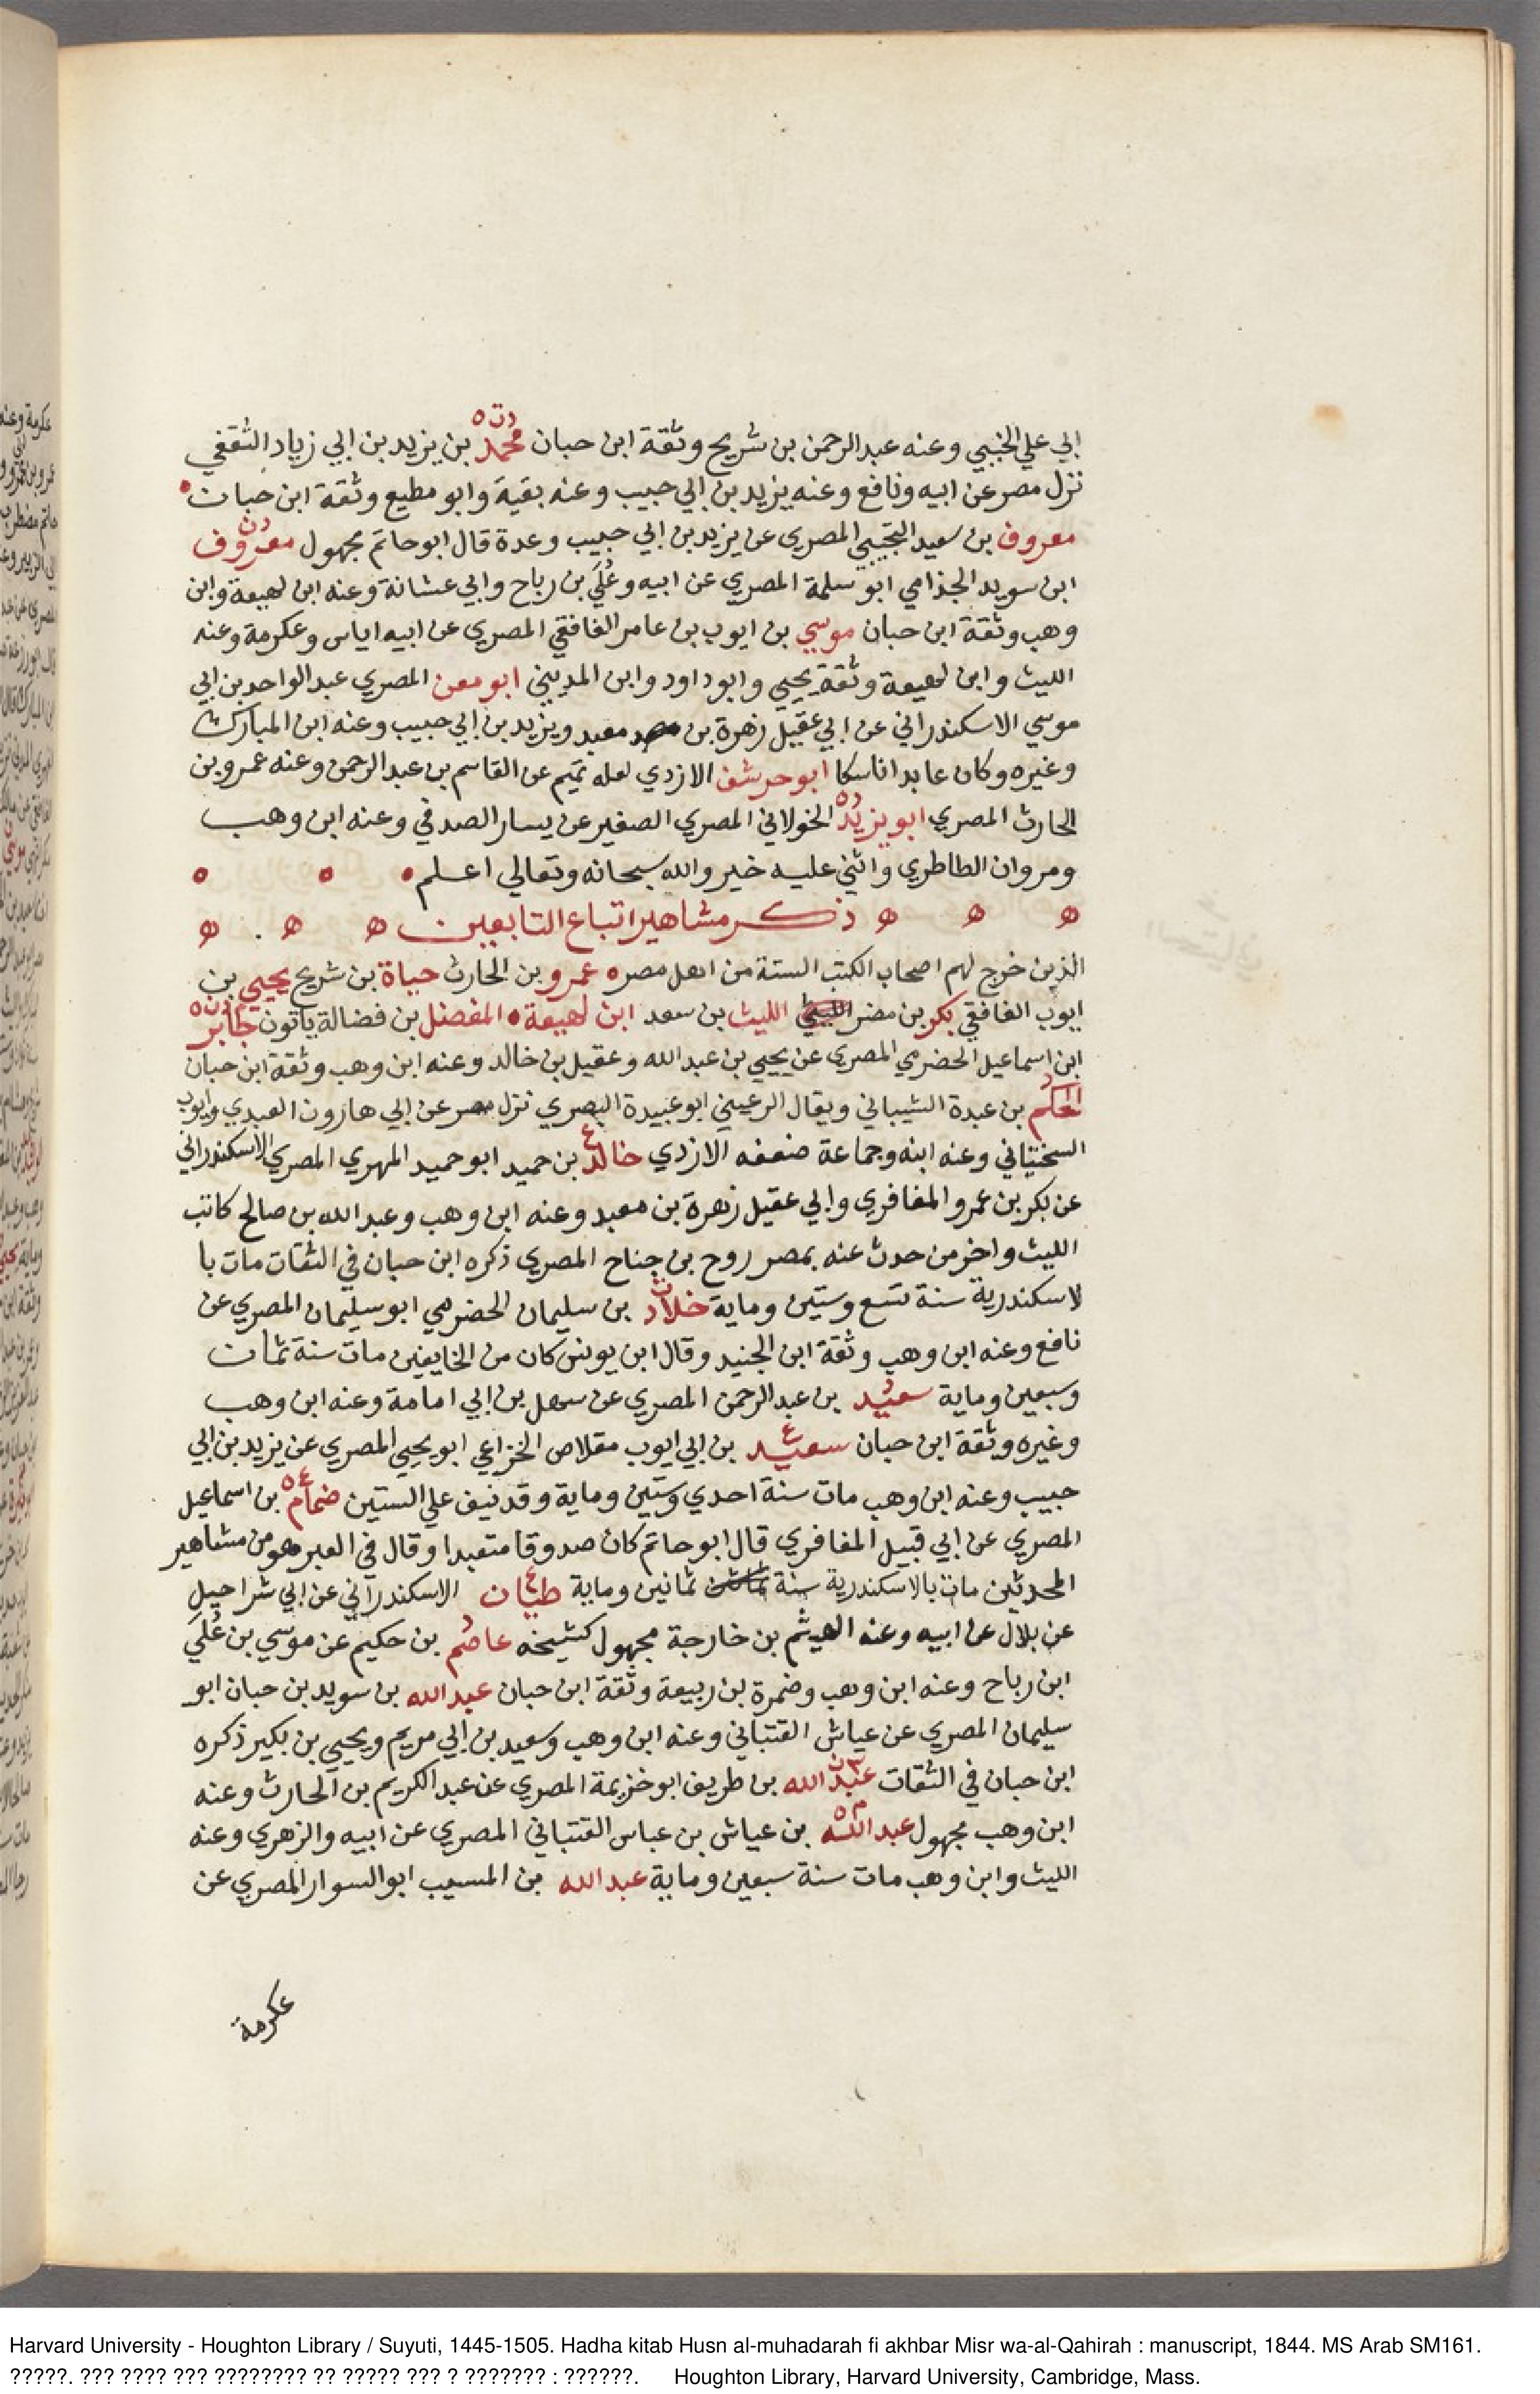 د ت ه
ابي علي الجنبي وعنه عبد الرحمن بن شريح وثقة ابن حبان محمد بن يزيد بن ابي زياد الثقفي
نزل مصر عن ابيه ونافع وعنه يزيد بن ابي حبيب وعنه بقية وابو مطيع وثقة ابن حبان
معروف بن سعيد التجيبي المصري عن يزيد بن ابي حبيب وعدة قال ابو حاتم مجهول معروف
ابن سويد الجذامي ابو سلمة المصري عن ابيه وعُلَي بن رباح وابي عشانة وعنه ابن لهيعة وابن
وهب وثقة ابن حبان موسي بن ايوب بن عامر الغافقي المصري عن ابيه اياس وعكرمة وعنه
الليث وابن لهيعة وثقة يحيي وابو داود وابن المديني ابو معن المصري عبد الواحد بن ابي
موسي الاسكندراني عن ابي عقيل زهرة بن معبد ويزيد بن ابي حبيب وعنه ابن المبارك
وغيره وكان عابدا ناسكا ابو حرشف الازدي لعله تميم عن القاسم بن عبد الرحمن وعنه عمرو بن
الحارث المصري ابو يزيد الخولاني المصري الصغير عن يسار الصدفي وعنه ابن وهب
ومروان الطاطري واثني عليه خير والله سبحانه وتعالي اعلم
ذكر مشاهير اتباع التابعين
الذين خرج لهم اصحاب الكتب الستة من اهل مصر عمرو بن الحارث حياة بن شريح يحيي بن
ايوب الغافقي بكر بن مضر الليث بن سعد ابن لهيعة المفضل بن فضالة ياتون جابر
ابن اسماعيل الحضرمي المصري عن يحيي بن عبد الله وعقيل بن خالد وعنه ابن وهب وثقة ابن حبان
الحكم بن عبدة الشيباني ويقال الرعيني ابو عبيدة البصري نزل مصر عن ابي هارون العبدي وايوب
السختياني وعنه ابنه وجماعة ضعفه الازدي خالد بن حميد ابو حميد المهري المصري الاسكندراني
عن بكر بن عمرو المغافري وابي عقيل زهرة بن معبد وعنه ابن وهب وعبد الله بن صالح كاتب
الليث واخر من حدث عنه بمصر روح بن جناح المصري ذكره ابن حبان في الثقات مات با
لاسكندرية سنة تسع وستين وماية خلاد بن سليمان الحضرمي ابو سليمان المصري عن
نافع وعنه ابن وهب وثقة ابن الجنيد وقال ابن يونس كان من الخايفين مات سنة ثمان
وسبعين وماية سعيد بن عبد الرحمن المصري عن سهل بن ابي امامة وعنه ابن وهب
وغيره وثقة ابن حبان سعيد بن ابي ايوب مقلاص الخزاعي ابو يحيي المصري عن يزيد بن ابي
حبيب وعنه ابن وهب مات سنة احدي وستين وماية وقد نيف علي الستين ضمام بن اسماعيل
المصري عن ابي قبيل المغافري قال ابو حاتم كان صدوقا متعبدا وقال في العبر هو من مشاهير
المحدثين مات بالاسكندرية سنة ثمانين وماية طيان الاسكندراني عن ابي شراحيل
عن بلال عن ابيه وعنه الهيثم بن خارجة مجهول كشيخه عاصم بن حكيم عن موسي بن عُلَي
ابن رباح وعنه ابن وهب وضمرة بن ربيعة وثقة ابن حبان عبد الله بن سويد بن حبان ابو
سليمان المصري عن عياش القتباني وعنه ابن وهب وسعيد بن ابي مريم ويحيي بن بكير ذكره
ابن حبان في الثقات عبد الله بن طريف ابو خزيمة المصري عن عبد الكريم بن الحارث وعنه
ابن وهب مجهول عبد الله بن عياش بن عباس القتباني المصري عن ابيه والزهري وعنه
الليث وابن وهب مات سنة سبعين وماية عبد الله بن المسيب ابو السوار المصري عن
عكرمة
Harvard University - Houghton Library / Suyuti, 1445-1505. Hadha kitab Husn al-muhadarah fi akhbar Misr wa-al-Qahirah : manuscript, 1844. MS Arab SM161.
?????. ??? ???? ??? ???????? ?? ????? ??? ? ??????? : ??????. Houghton Library, Harvard University, Cambridge, Mass.